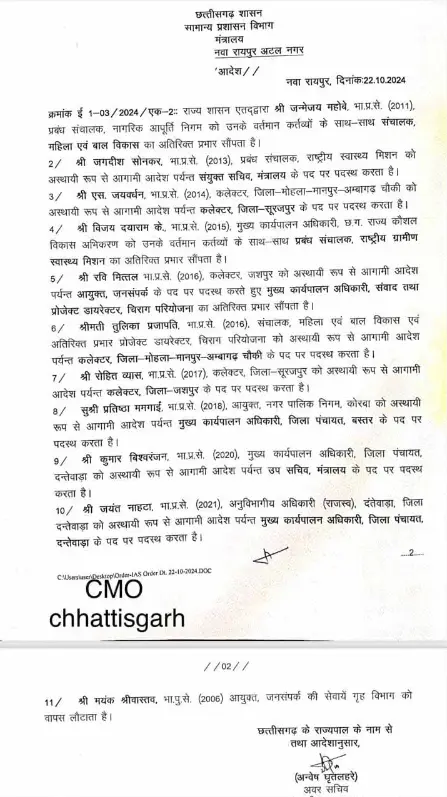 छत्तीसगढ़ शासन
सामान्य प्रशासन विभाग
मंत्रालय
नवा रायपुर अटल नगर
'आदेश//
नवा रायपुर, दिनांक:22.10.2024
क्रमांक ई 1-03/2024/एक-2:: राज्य शासन एतद्द्वारा श्री जन्मेजय महोबे, भा.प्र.से. (2011),
प्रबंध संचालक, नागरिक आपूर्ति निगम को उनके वर्तमान कर्तव्यों के साथ-साथ संचालक,
महिला एवं बाल विकास का अतिरिक्त प्रभार सौंपता है।
2/ श्री जगदीश सोनकर, भा.प्र.से. (2013), प्रबंध संचालक, राष्ट्रीय स्वास्थ्य मिशन को
अस्थायी रूप से आगामी आदेश पर्यन्त संयुक्त सचिव, मंत्रालय के पद पर पदस्थ करता है।
3/ श्री एस. जयवर्धन, भा.प्र.से. (2014), कलेक्टर, जिला-मोहला-मानपुर-अम्बागढ़ चौकी को
अस्थायी रूप से आगामी आदेश पर्यन्त कलेक्टर, जिला-सूरजपुर के पद पर पदस्थ करता है।
4/ श्री विजय दयाराम के., भा.प्र.से. (2015), मुख्य कार्यपालन अधिकारी, छ.ग. राज्य कौशल
विकास अभिकरण को उनके वर्तमान कर्तव्यों के साथ-साथ प्रबंध संचालक, राष्ट्रीय ग्रामीण
स्वास्थ्य मिशन का अतिरिक्त प्रभार सौंपता है।
5/ श्री रवि मित्तल भा.प्र.से. (2016), कलेक्टर, जशपुर को अस्थायी रूप से आगामी आदेश
पर्यन्त आयुक्त, जनसंपर्क के पद पर पदस्थ करते हुए मुख्य कार्यपालन अधिकारी, संवाद तथा
प्रोजेक्ट डायरेक्टर, चिराग परियोजना का अतिरिक्त प्रभार सौंपता है।
6/ श्रीमती तुलिका प्रजापति, भा.प्र.से. (2016), संचालक, महिला एवं बाल विकास एवं
अतिरिक्त प्रभार प्रोजेक्ट डायरेक्टर, चिराग परियोजना को अस्थायी रूप से आगामी आदेश
पर्यन्त कलेक्टर, जिला-मोहला-मानपुर-अम्बागढ़ चौकी के पद पर पदस्थ करता है।
7/ श्री रोहित व्यास, भा.प्र.से. (2017), कलेक्टर, जिला-सूरजपुर को अस्थायी रूप से आगामी
आदेश पर्यन्त कलेक्टर, जिला-जशपुर के पद पर पदस्थ करता है।
8/ सुश्री प्रतिष्ठा ममगाई, भा.प्र.से. (2018), आयुक्त, नगर पालिक निगम, कोरबा को अस्थायी
रूप से आगामी आदेश पर्यन्त मुख्य कार्यपालन अधिकारी, जिला पंचायत, बस्तर के पद पर
पदस्थ करता है।
9/ श्री कुमार बिश्वरंजन, भा.प्र.से. (2020), मुख्य कार्यपालन अधिकारी, जिला पंचायत,
दन्तेवाड़ा को अस्थायी रूप से आगामी आदेश पर्यन्त उप सचिव, मंत्रालय के पद पर पदस्थ
करता है।
10/ श्री जयंत नाहटा, भा.प्र.से. (2021), अनुविभागीय अधिकारी (राजस्व), दंतेवाड़ा, जिला
दन्तेवाड़ा को अस्थायी रूप से आगामी आदेश पर्यन्त मुख्य कार्यपालन अधिकारी, जिला पंचायत,
दन्तेवाड़ा के पद पर पदस्थ करता है।
....2....
C:\Users\user\Desktop\Order-IAS Order Dt. 22-10-2024.DOC
CMO
chhattisgarh
//02//
11/ श्री मयंक श्रीवास्तव, भा.पु.से. (2006) आयुक्त, जनसंपर्क की सेवायें गृह विभाग को
वापस लौटाता है।
छत्तीसगढ़ के राज्यपाल के नाम से
तथा आदेशानुसार,
(अन्वेष घृतलहरे)
अवर सचिव